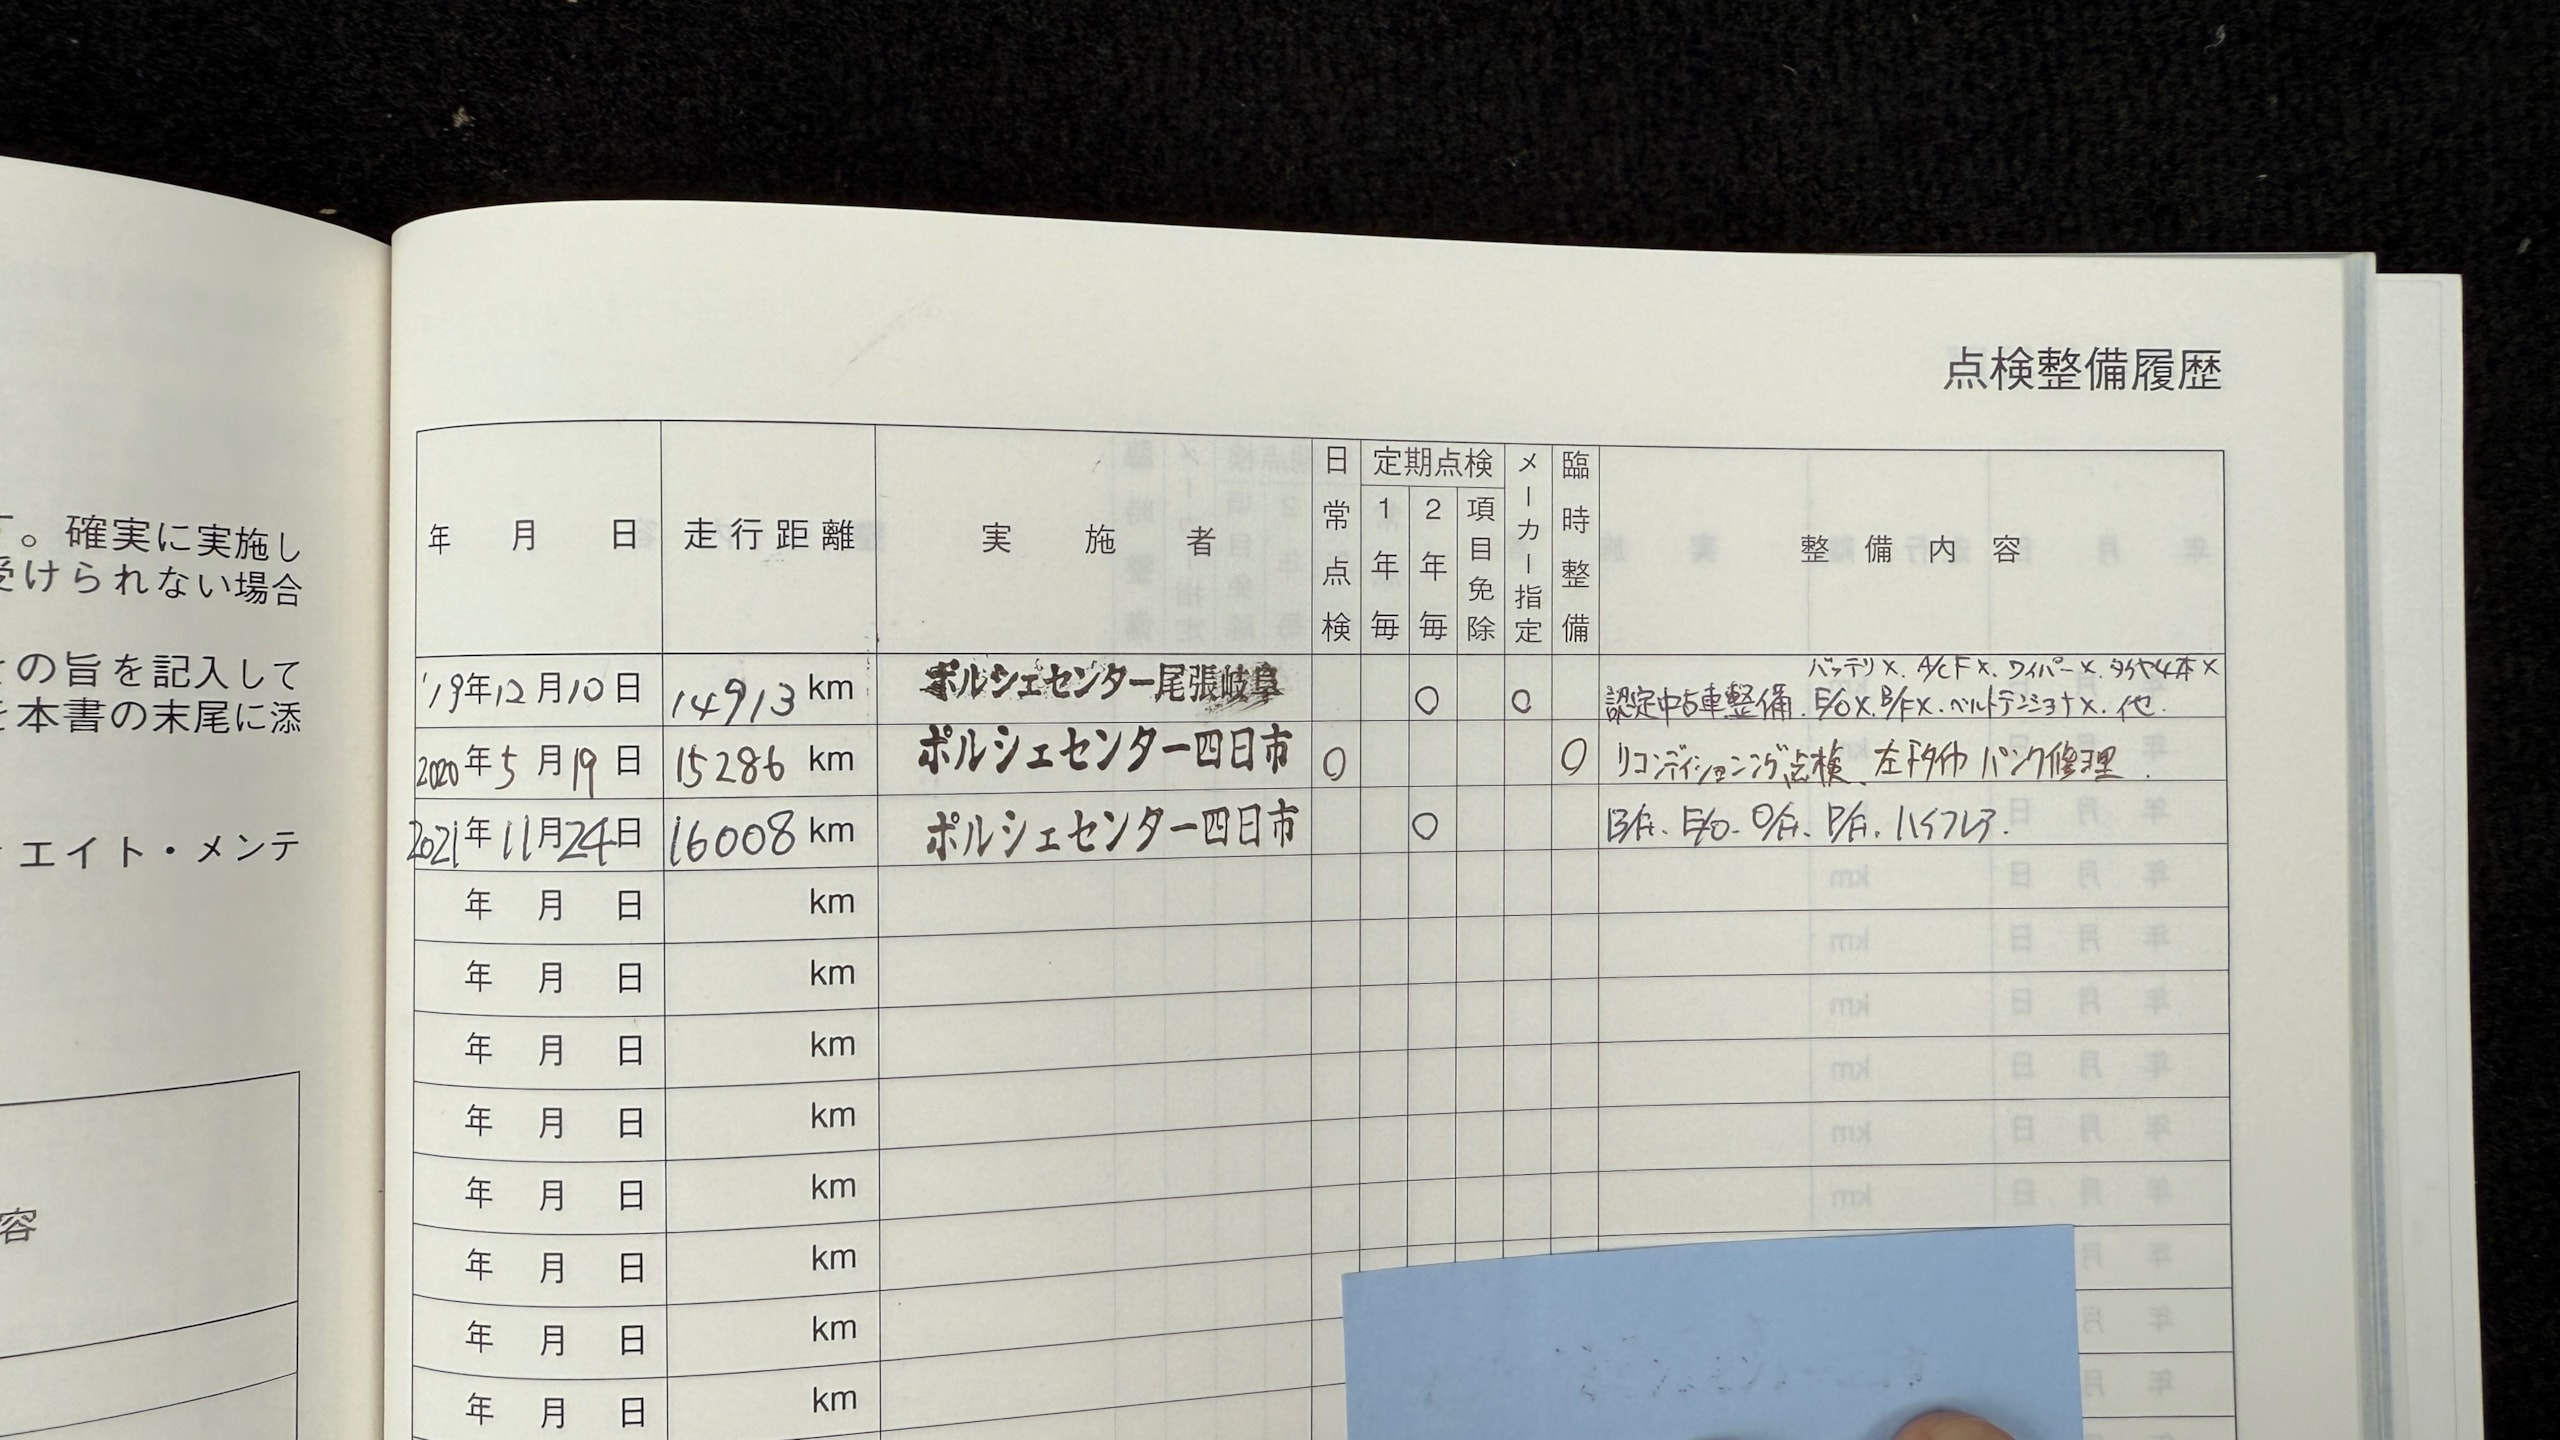 。確実に実施し
受けられない場合
の旨を記入して
本書の末尾に添
エイト・メンテ
容
点検整備履歴
年 月 日 走行距離 実施者 日常点検 定期点検 1年毎 2年毎 項目免除 メーカー指定 臨時整備 整備内容
バッテリx. A/C F x. ワイパーx. タイヤ4本x
'19年12月10日 14913 km ポルシェセンター尾張岐阜 ○ ○ 認定中古車整備. E/O x. B/F x. ベルトテンショナx. 他.
2020年5月19日 15286 km ポルシェセンター四日市 ○ ○ リコンディショニング点検、左Fタイヤ パンク修理.
2021年11月24日 16008 km ポルシェセンター四日市 ○ E/O. ハイフレア.
年 月 日 km
年 月 日 km
年 月 日 km
年 月 日 km
年 月 日 km
年 月 日 km
年 月 日 km
年 月 日 km